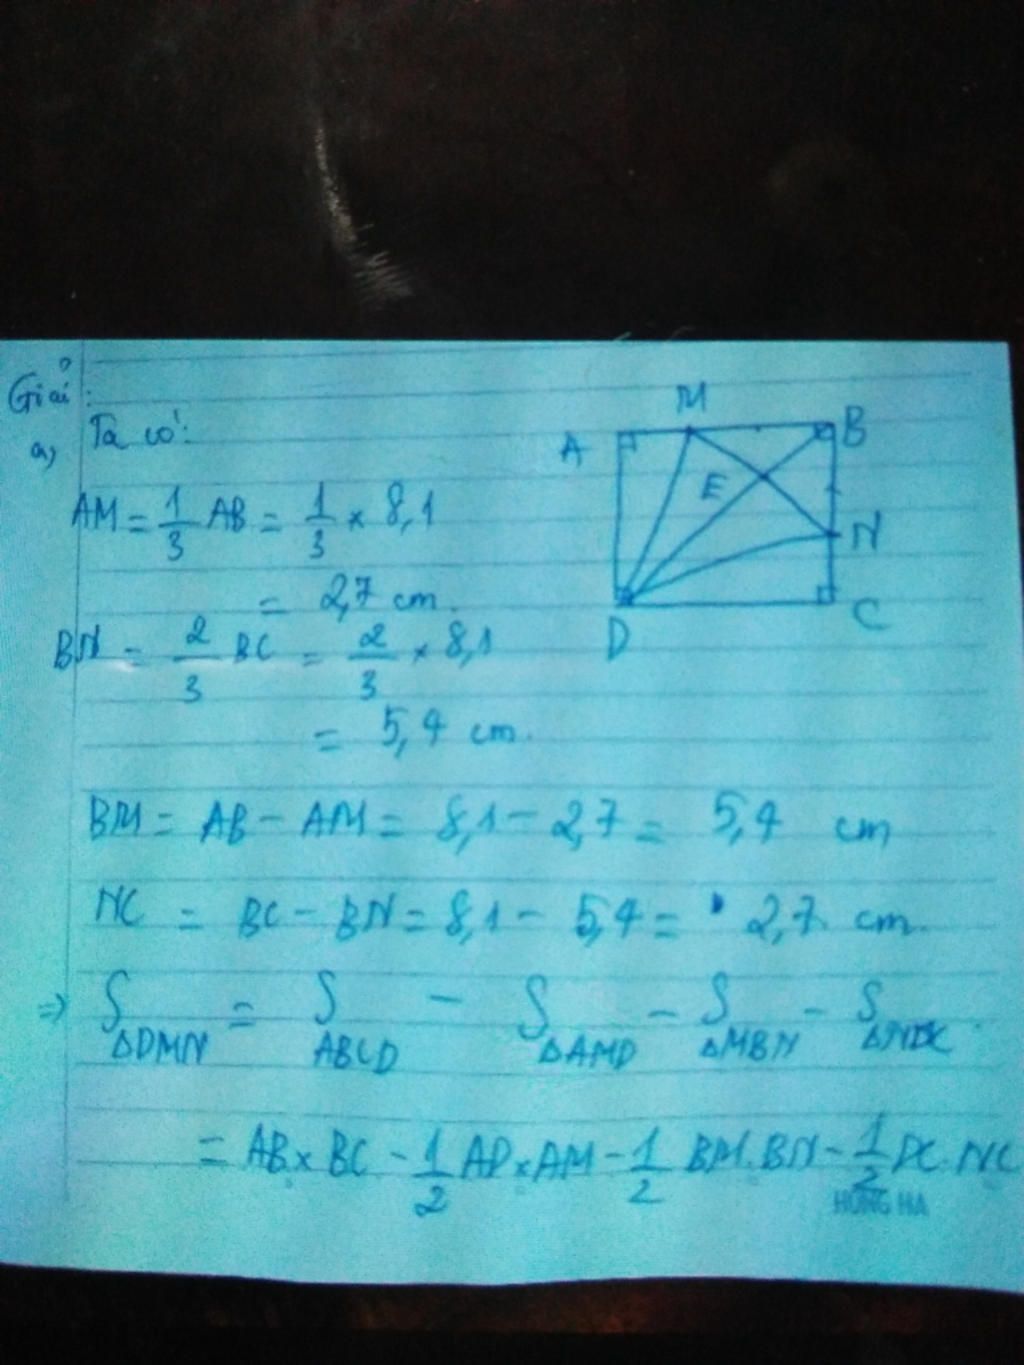 Giải:
a, Ta có:
M
A
B
E
N
D
C
AM = 1/3 AB = 1/3 × 8,1
= 2,7 cm.
BN = 2/3 BC = 2/3 × 8,1
= 5,4 cm.
BM = AB - AM = 8,1 - 2,7 = 5,4 cm
NC = BC - BN = 8,1 - 5,4 = 2,7 cm.
=> S ΔDMN = S ABCD - S ΔAMD - S ΔMBN - S ΔNDC
= AB × BC - 1/2 AD × AM - 1/2 BM.BN - 1/2 DC.NC
HONG HA